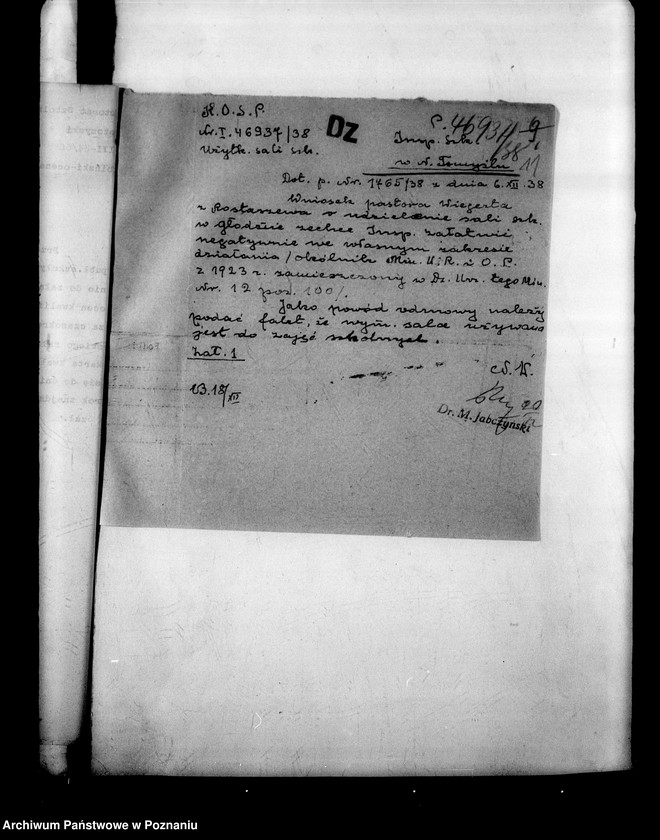 K.O.S.P.
Nr.I.46937/38
Użytk. sali szk.
DZ
P. 46937/38
Insp. Szk.
w N. Tomyślu
Dot. p. Nr. 1765/38 z dnia 6.XII.38
Wniosek pastora Wiegerta
z Rostarzewa o udzielenie sali szk.
w głodzie zechce Insp. załatwić
negatywnie we własnym zakresie
działania /okólnik Min. W.R. i O.P.
z 1923 r. zamieszczony w Dz. Urz. tego Min.
Nr. 12 poz. 100/.
Jako powód odmowy należy
podać fakt, że wym. sala używana
jest do zajęć szkolnych.
Zał. 1
18/XII
Dr. M. Jabczyński
Archiwum Państwowe w Poznaniu